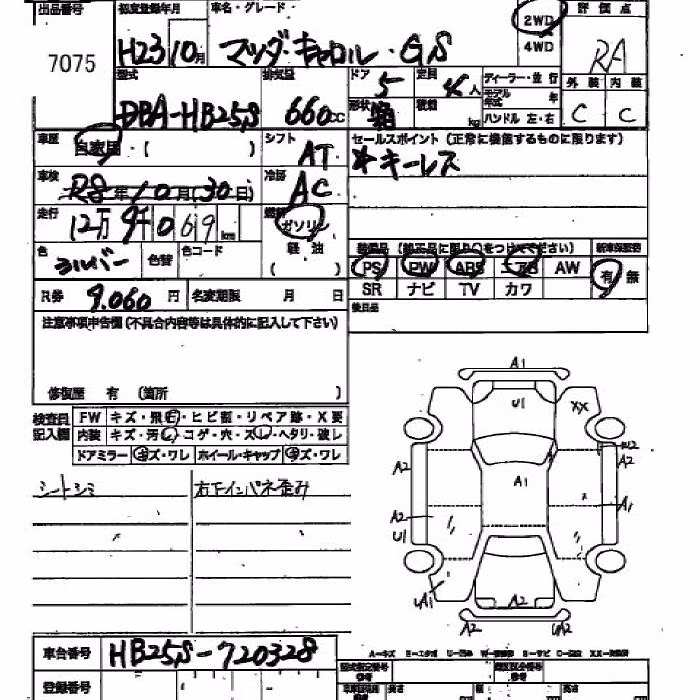 出品番号 初度登録年月 車名・グレード 2WD 評価点
7075 H23 10月 マツダ・キャロル・GS 4WD RA
型式 排気量 ドア 定員 ディーラー・並行 外装 内装
DBA-HB25S 660cc 5 4人 モデル年式 年
形状 箱 積載 kg ハンドル 左・右 C C
車歴 自家用・( ) シフト AT セールスポイント(正常に機能するものに限ります)
車検 R8年10月(30日) 冷房 AC ☆キーレス
走行 12万9千069km 燃料 ガソリン
軽油
色 シルバー 色替 色コード ( )
装備品(純正品に限り○をつけて下さい) 新車保証書
PS PW ABS エアB AW 有・無
SR ナビ TV カワ
R券 9,060円 名変期限 月 日 後日品
注意事項申告欄(不具合内容等は具体的に記入して下さい)
修復歴 有 (箇所 )
検査員記入欄 FW キズ・飛石・ヒビ割・リペア跡・X要
内装 キズ・汚レ・コゲ・穴・スレ・ヘタリ・破レ
ドアミラー キズ・ワレ ホイール・キャップ キズ・ワレ
シートシミ 右下インパネ歪み
A1
U1 XX
A2 A2
A1
A2 A1
U1
A1
A2
A2 UA2
車台番号 HB25S-720328
A-キズ E-エクボ U-凹み W-修理跡 S-サビ C-腐食 XX-交換済
登録番号
型式指定番号 類別区分番号
長さ 幅 高さ